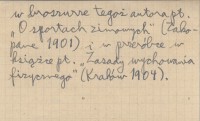 w broszurze tegoż autora pt.
„O sportach zimowych" (Zako-
pane 1901) i w przeróbce w
książce pt. „Zasady wychowania
fizycznego" (Kraków 1904).